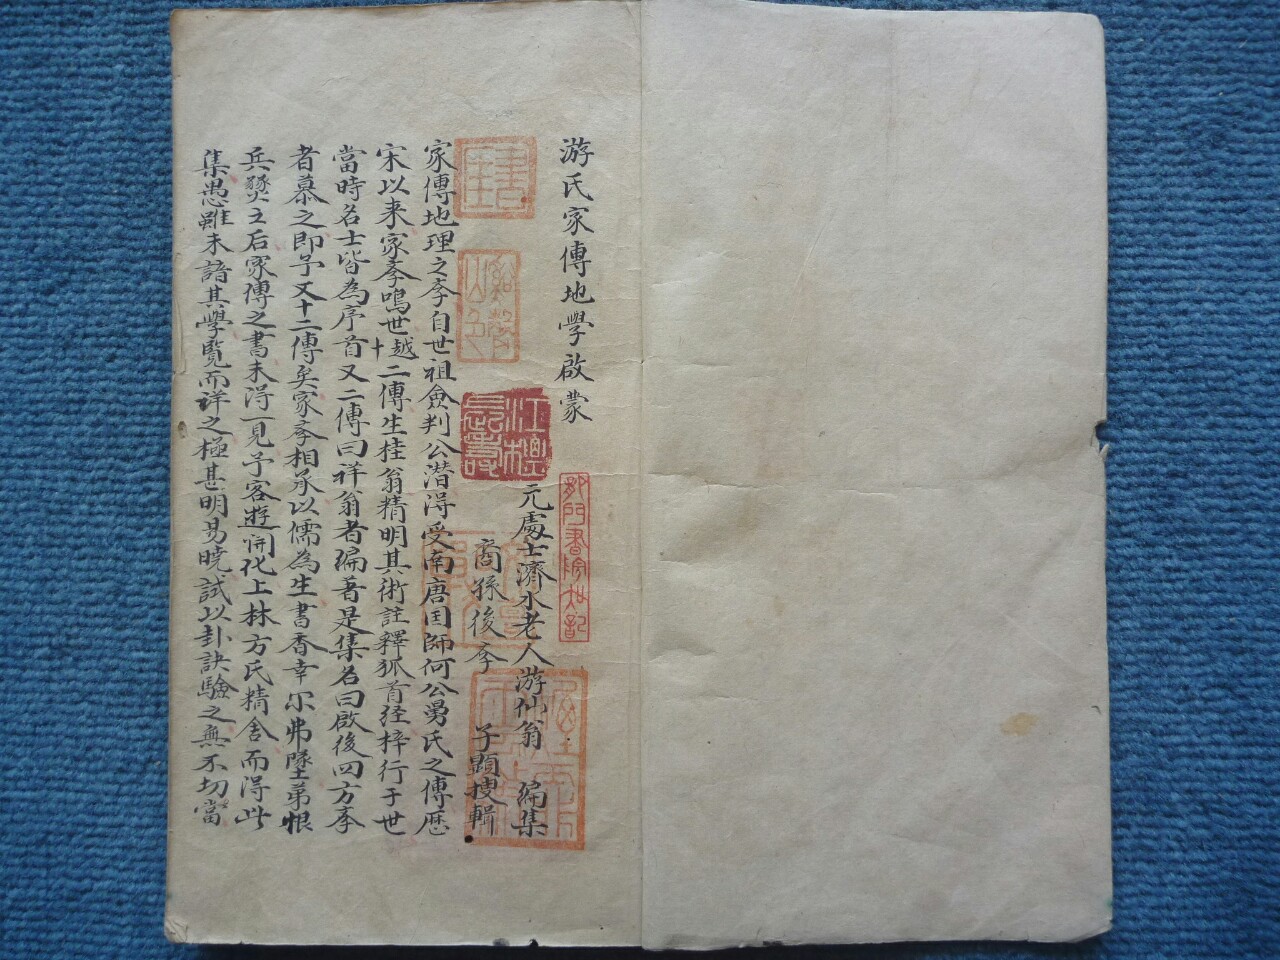 游氏家傳地學啟蒙
元處士濟水老人游仙翁 編集
裔孫後孝 子顯搜輯
家傳地理之孝自世祖僉判公潛得受南唐国師何公舅氏之傳歴
宋以来家孝鳴世越十二傳生桂翁精明其術註釋狐首经梓行于世
當時名士皆為序首又二傳曰祥翁者编著是集名曰啟後四方孝
者慕之即予又十二傳矣家孝相承以儒為生書香幸尔弗墜苐恨
兵燹之后家傳之書未淂一見予客遊開化上林方氏精舍而得此
集愚雖未諳其學覧而详之極甚明易曉試以卦訣驗之無不切當
江樫長壽